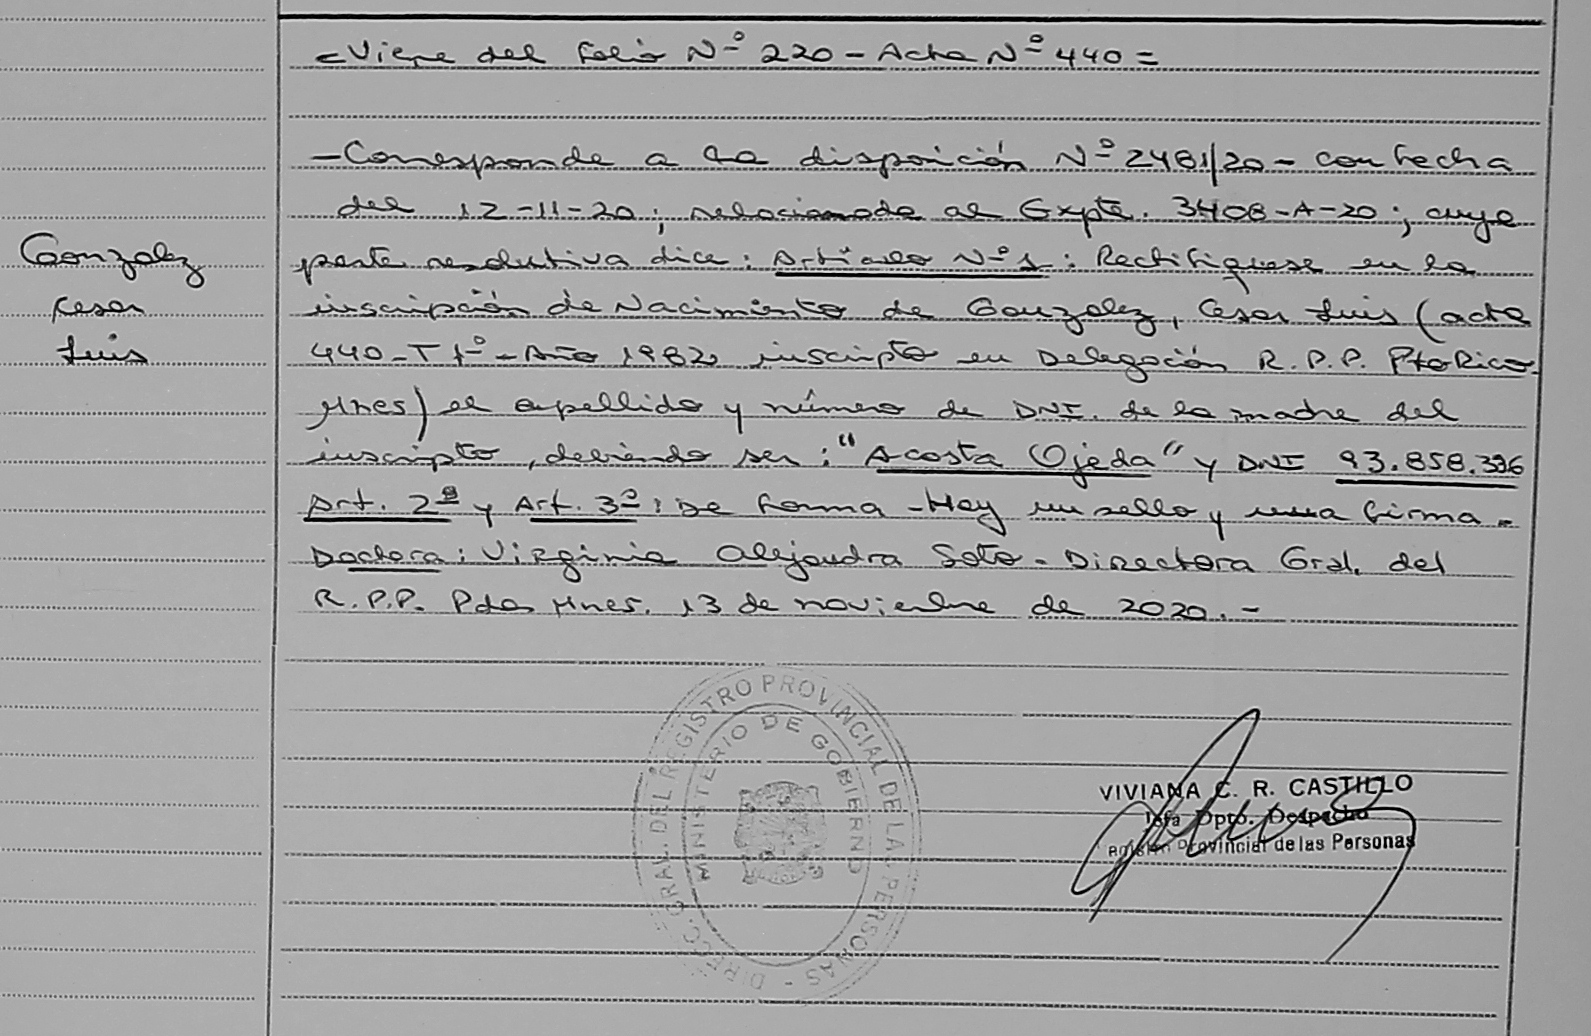 =Viene del Folio Nº 220 - Acta Nº 440=
-Corresponde a la disposición Nº 2481/20 - con fecha
del 12-11-20; relacionada al Expte. 3408-A-20; cuya
Gonzalez
Cesar
Luis
parte resolutiva dice: Artículo Nº 1: Rectifiquese en la
inscripción de Nacimiento de Gonzalez, Cesar Luis (acta
440-Tº1º-Año 1982, inscripto en Delegación R.P.P. Pto Rico
Mnes) el apellido y número de DNI. de la madre del
inscripto, debiendo ser: "Acosta Ojeda" y DNI 93.858.396
Art. 2º y Art. 3º: De forma - Hay un sello y una firma.
Doctora: Virginia Alejandra Soto - Directora Gral. del
R.P.P. Pdas Mnes. 13 de noviembre de 2020.-
DIRECC. GRAL. DEL REGISTRO PROVINCIAL DE LAS PERSONAS -
MINISTERIO DE GOBIERNO
VIVIANA C. R. CASTILLO
Jefa Dpto. Despacho
Provincial de las Personas